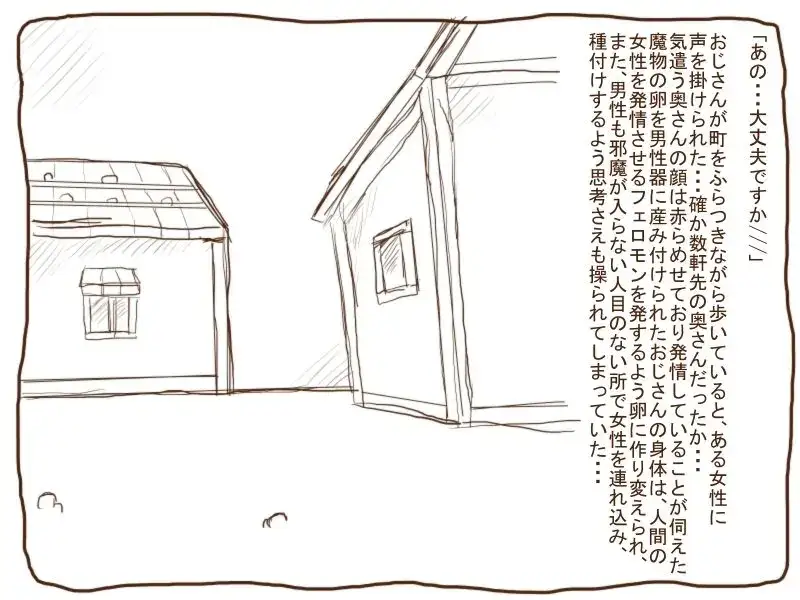 「あの・・・大丈夫ですか///」
おじさんが町をふらつきながら歩いていると、ある女性に
声を掛けられた・・・確か数軒先の奥さんだったか・・・
気遣う奥さんの顔は赤らめせており発情していることが伺えた
魔物の卵を男性器に産み付けられたおじさんの身体は、人間の
女性を発情させるフェロモンを発するよう卵に作り変えられ、
また、男性も邪魔が入らない人目のない所で女性を連れ込み、
種付けするよう思考さえも操られてしまっていた・・・